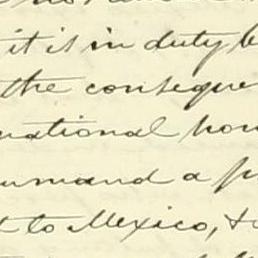 it is in duty b
the conseque
national hon
mmand a p
t to Mexico, &